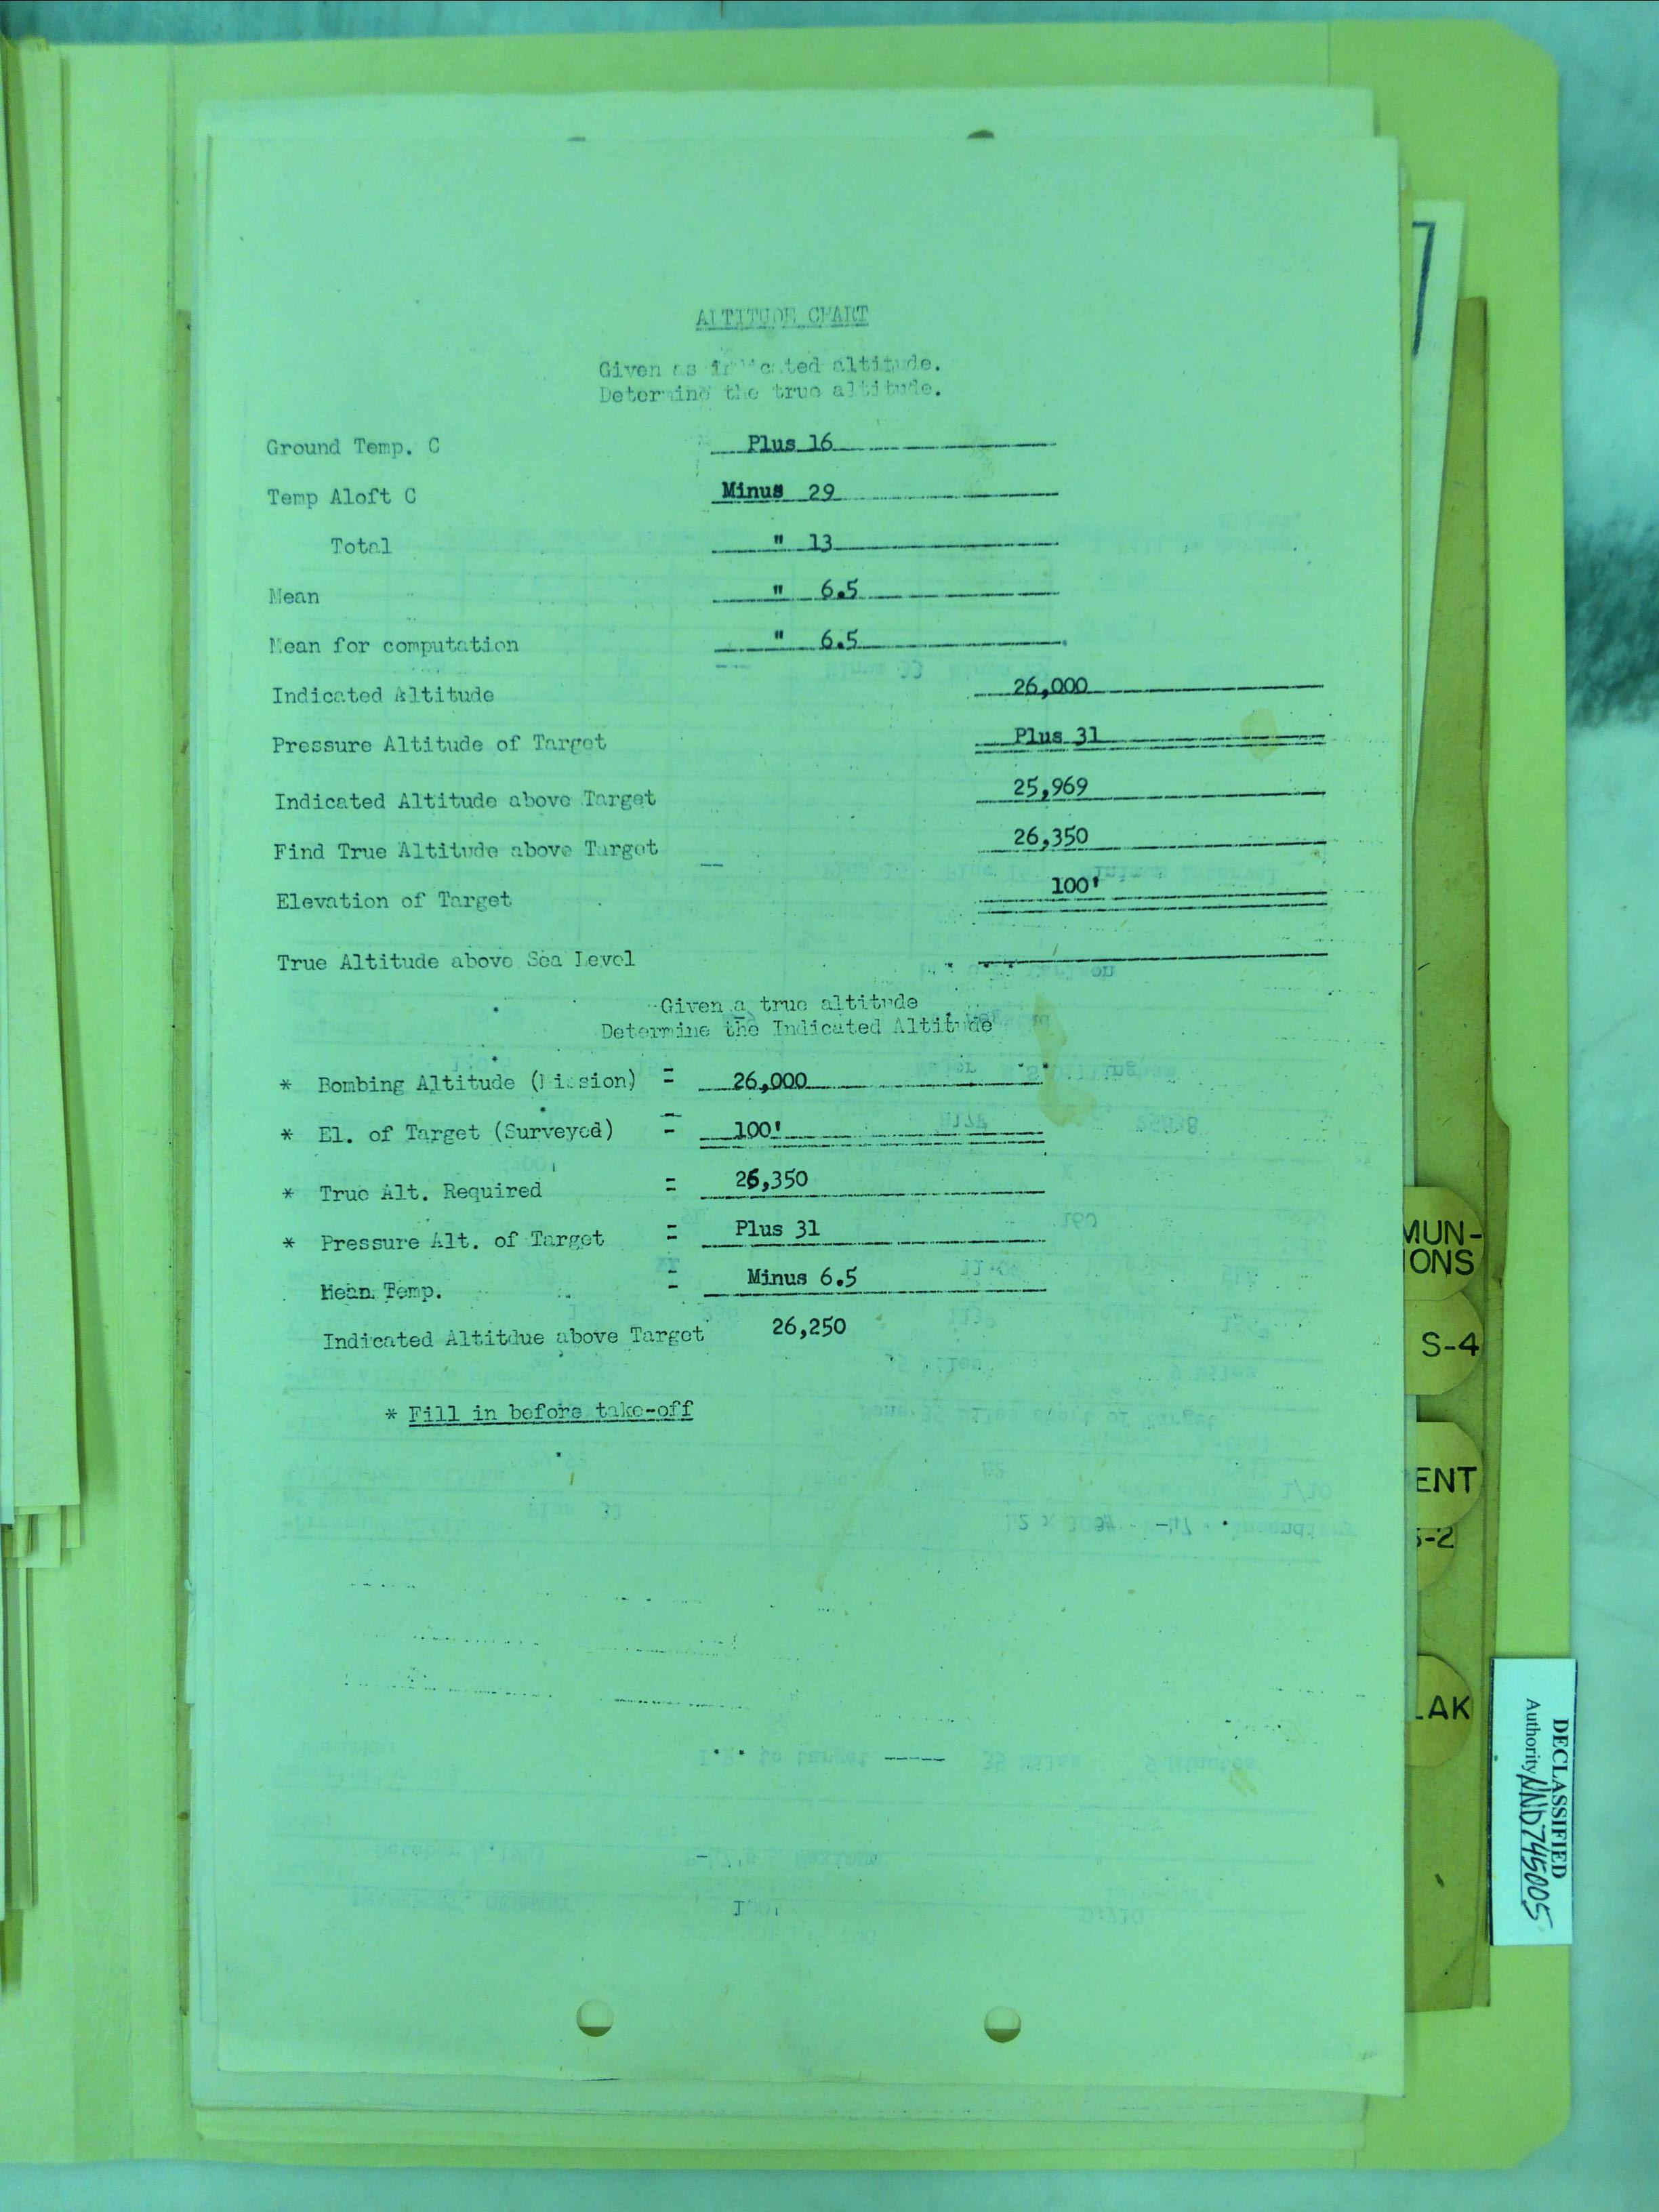 ALTITUDE CHART
Given as indicated altitude.
Determine the true altitude.
Ground Temp. C Plus 16
Temp Aloft C Minus 29
Total " 13
Mean " 6.5
Mean for computation " 6.5
Indicated Altitude 26,000
Pressure Altitude of Target Plus 31
Indicated Altitude above Target 25,969
Find True Altitude above Target 26,350
Elevation of Target 100'
True Altitude above Sea Level
Given a true altitude
Determine the Indicated Altitude
* Bombing Altitude (Mission) = 26,000
* El. of Target (Surveyed) = 100'
* True Alt. Required = 26,350
* Pressure Alt. of Target = Plus 31
Mean Temp. = Minus 6.5
Indicated Altitdue above Target 26,250
* Fill in before take-off
MUN-
IONS
S-4
ENT
S-2
LAK
DECLASSIFIED
Authority NND745005